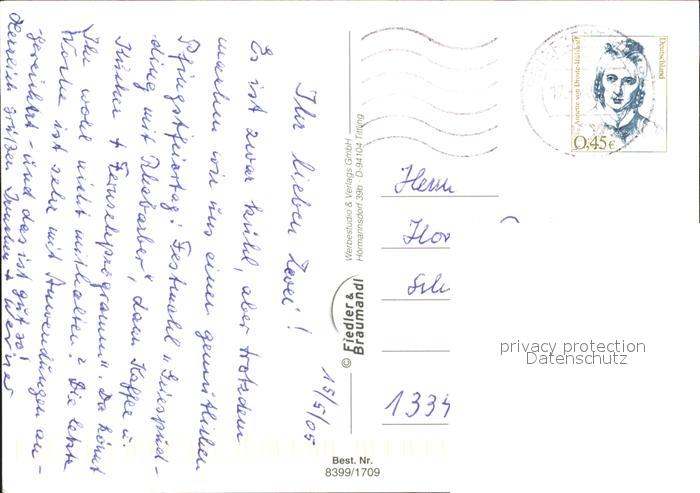 15/5/05
Ihr lieben Zwei!
Es ist zwar kühl, aber trotzdem
machen wir uns einen gemütlichen
Pfingstfeiertag: Festmahl "Griespud-
ding mit Rhabarber", dann Kaffee u.
Kuchen + Fernsehprogramm". Da könnt
Ihr wohl nicht mithalten? Die letzte
Woche ist sehr mit Anwendungen an-
gereichert - und das ist gut so!
Herzlich grüßen + Werner
Werbestudio & Verlags GmbH
Hörmannsdorf 39b · D-94104 Tittling
© Fiedler &
Braumandl
Best. Nr.
8399/1709
Deutschland
Annette von Droste-Hülshoff
0,45€
Herrn
Hor
Sch
1334
privacy protection
Datenschutz